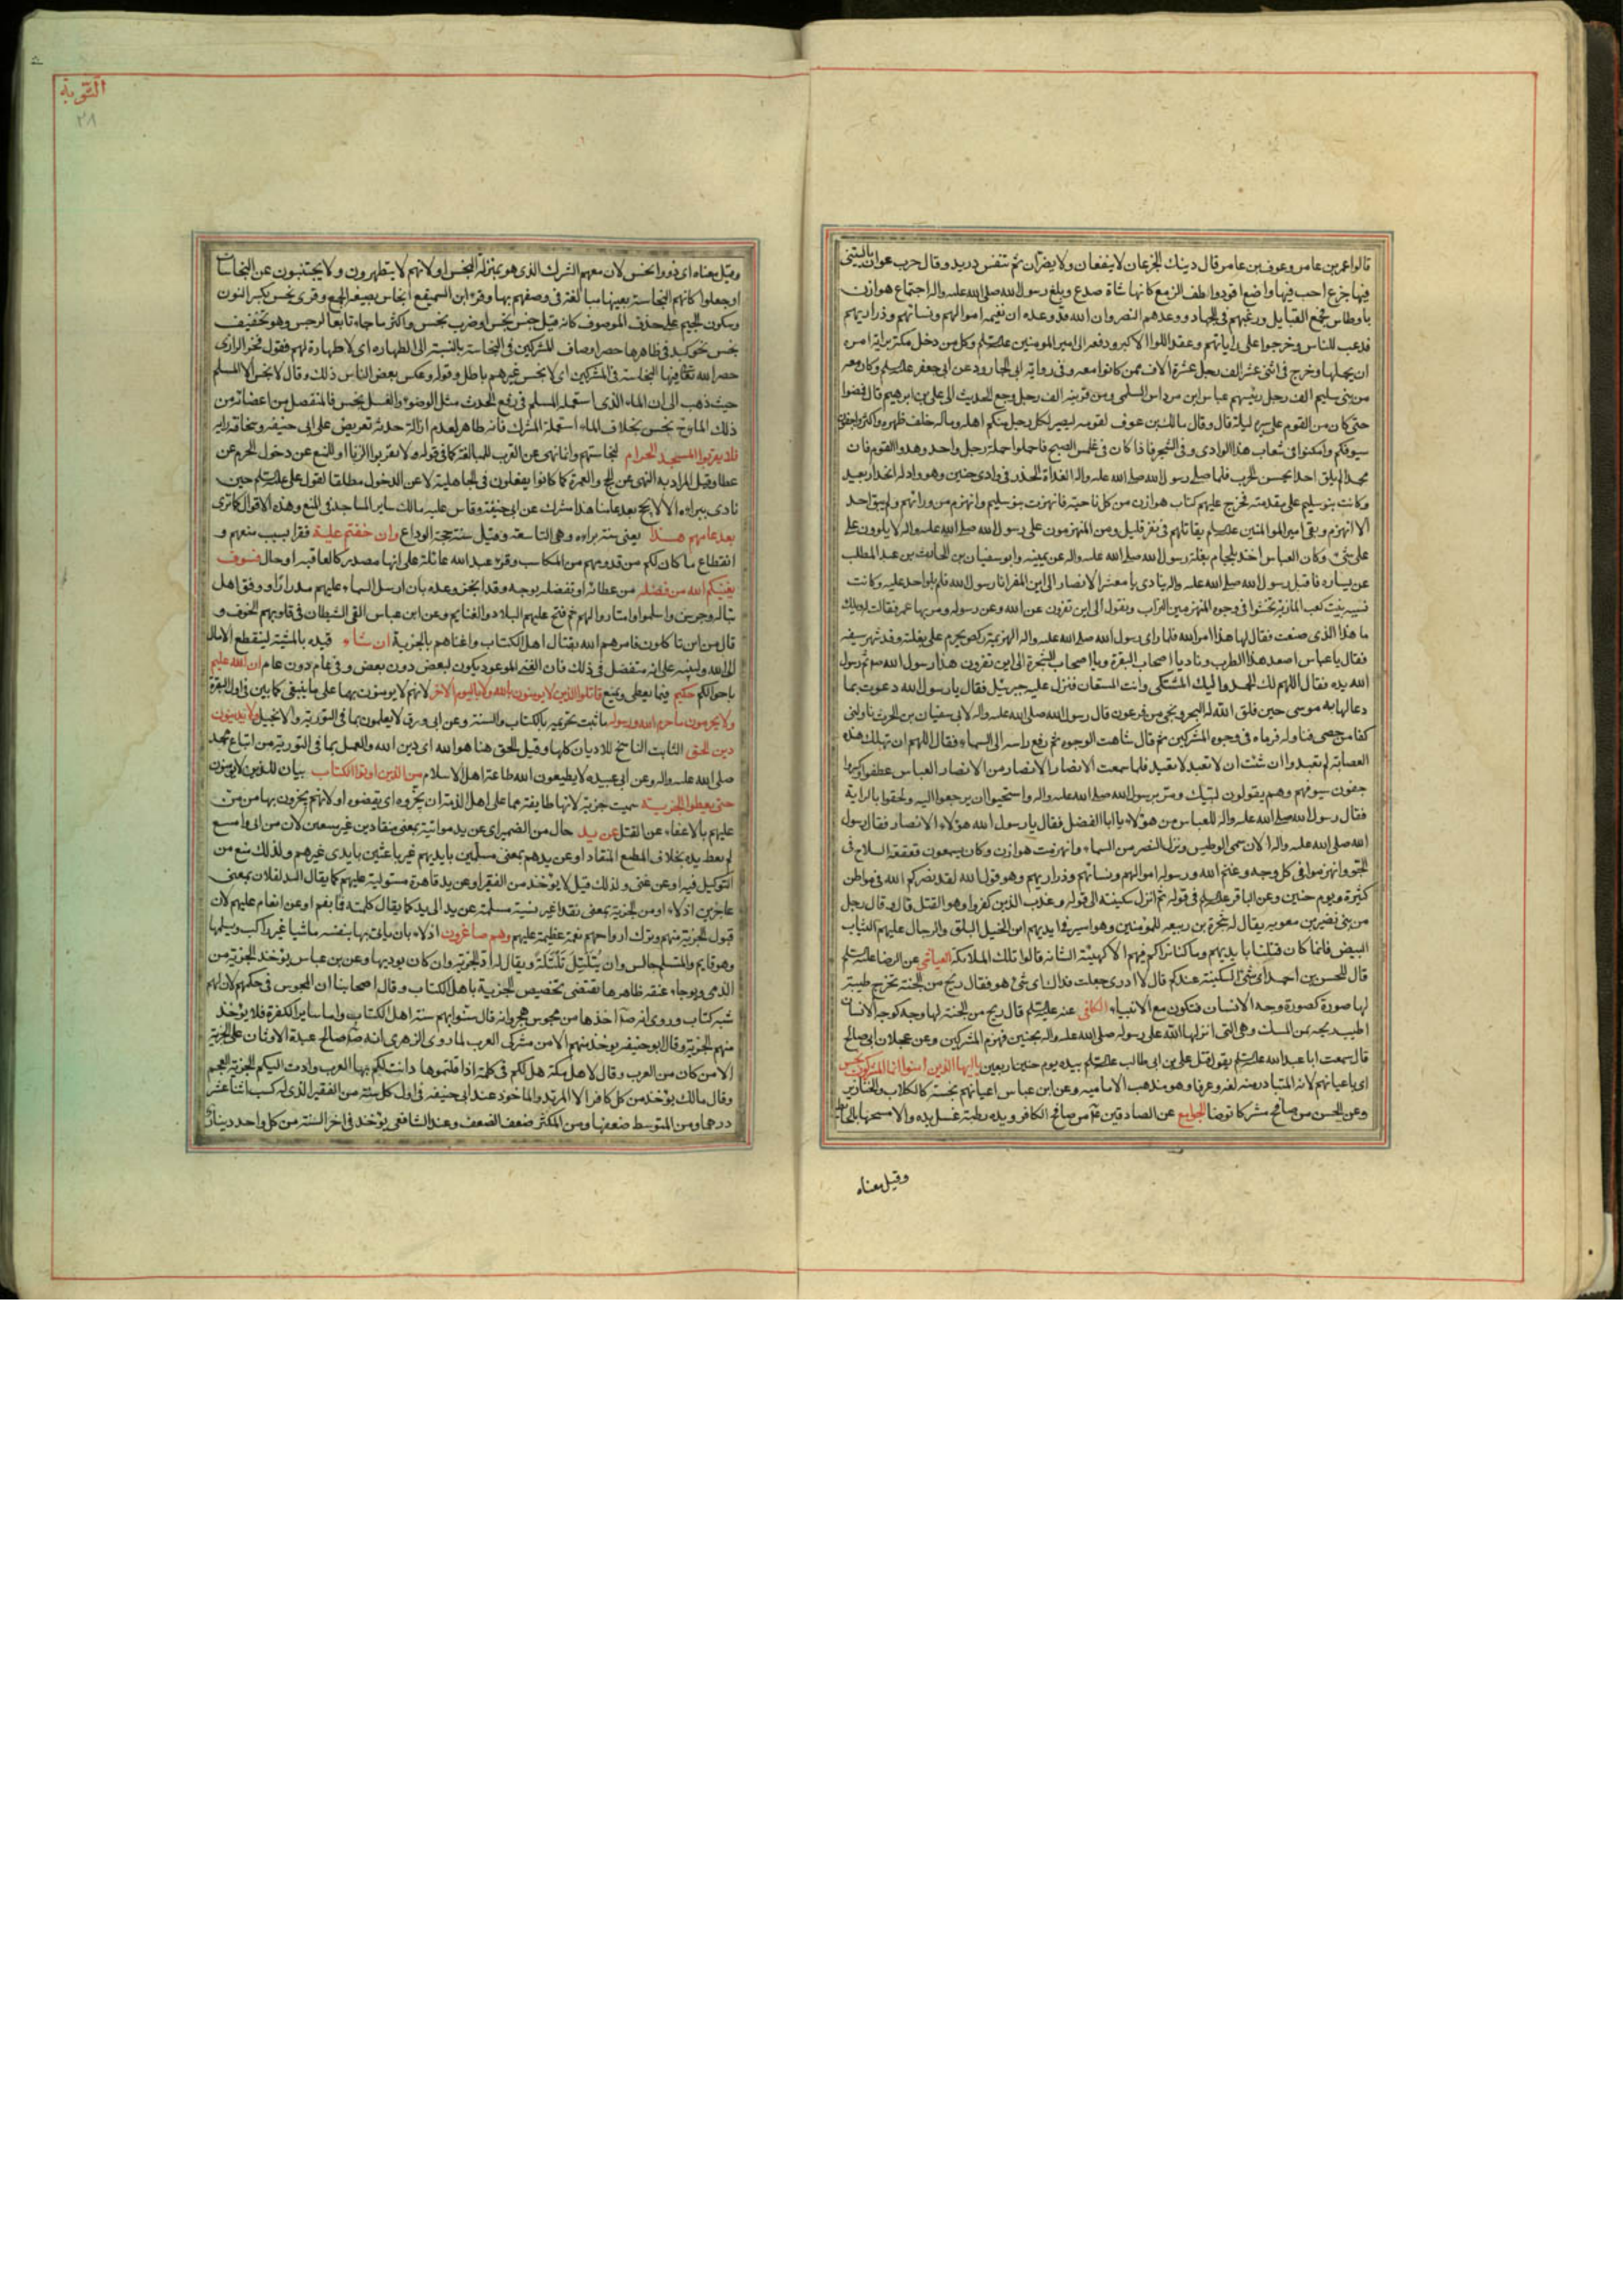 قالوا عمرو بن عامر وعوف بن عامر قال دينك الجزعان لا ينفعان ولا يضران ثم تنفس دريد وقال حرب عوان يا ليتنى
فيها جزع احب فيها واضع اقود وطف الزمع كانها شاة صدع وبلغ رسول الله صلى الله عليه واله اجتماع هوازن
باوطاس فجمع القبايل ورغبهم فى الجهاد ووعدهم النصر وان الله قد وعده ان نغيمه اموالهم ونسائهم وذراريهم
فرغب للناس وخرجوا على راياتهم وعقد اللوا الاكبر ودفعه الى امير المومنين وكل من دخل مكة براية امره
ان يحملها وخرج فى اثنى عشر الف رجل عشرة الاف ممن كانوا معه وفى رواية ابى الجارود عن ابى جعفر وكان معه
من بنى سليم الف رجل رئيسهم عباس ابن مرداس السلمى ومن مزينه الف رجل رجع الحديث الى على بن ابرهيم قال فمضوا
حتى كان من القوم على مسيرة ليلة قال وقال مالك بن عوف لقومه ليصير كل رجل منكم اهله وماله خلف ظهره واكسروا جفون
سيوفكم واكمنوا فى شعاب هذا الوادى وفى الشجر فاذا كان فى غلس الصبح فاحملوا حملة رجل واحد وهدوا القوم فان
محمدا لم يلق احدا يحسن الحرب فلما صلى رسول الله صلى الله عليه واله الغداة انحدر فى وادى حنين وهو واد له انحدار بعيد
وكانت بنو سليم على مقدمته فخرج عليهم كتايب هوازن من كل ناحية فانهزمت بنو سليم وانهزم من ورائهم ولم يبق احد
الا انهزم وبقى امير المومنين يقاتلهم فى نفر قليل ومر المنهزمون على رسول الله صلى الله عليه واله لا يلوون على
على شئ وكان العباس اخذ بلجام بغلة رسول الله صلى الله عليه واله عن يمينه وابو سفيان بن الحارث بن عبد المطلب
عن يساره فاقبل رسول الله صلى الله عليه واله ينادى يا معشر الانصار الى اين المفر انا رسول الله فلم يلو احد عليه وكانت
نسيبه بنت كعب المازنية تحثوا فى وجوه المنهزمين التراب وتقول الى اين تفرون عن الله وعن رسوله ومر بها عمر فقالت له ويلك
ما هذا الذى صنعت فقال لها هذا امر الله فلما راى رسول الله صلى الله عليه واله الهزيمة ركض نحوهم على بغلته وقد شهر سيفه
فقال يا عباس اصعد هذا الطرب وناد يا اصحاب البقرة ويا اصحاب الشجرة الى اين تفرون هذا رسول الله ثم رفع رسول
الله يده فقال اللهم لك الحمد واليك المشتكى وانت المستعان فنزل عليه جبرئيل فقال يا رسول الله دعوت بما
دعا به موسى حين فلق الله له البحر ونجى من فرعون ثم قال رسول الله صلى الله عليه واله لابى سفيان بن الحرث ناولنى
كفا من حصى فناوله فرماه فى وجوه المشركين ثم قال شاهت الوجوه ثم رفع راسه الى السماء فقال اللهم ان تهلك هذه
العصابة لم تعبد وان شئت ان لا تعبد لا تعبد فلما سمعت الانصار من العباس عطفوا وكسروا
جفون سيوفهم وهم يقولون لبيك ومروا برسول الله صلى الله عليه واله واستحيوا ان يرجعوا اليه ولحقوا بالراية
فقال رسول الله صلى الله عليه واله للعباس من هؤلاء يا ابا الفضل فقال يا رسول الله هؤلاء الانصار فقال رسول
الله صلى الله عليه واله الان حمى الوطيس ونزل النصر من السماء وانهزمت هوازن وكان يسمعون قعقعة السلاح فى
الجو وانهزموا فى كل وجه وغنم الله ورسوله اموالهم ونسائهم وذراريهم وهو قول الله لقد نصركم الله فى مواطن
كثيرة ويوم حنين وعن الباقر فى قوله ثم انزل سكينته الى قوله وعذب الذين كفروا وهو القتل قال وقال رجل
من بنى نضير بن معويه يقال له شجرة بن ربيعه للمؤمنين وهو اسير فى ايديهم اين الخيل البلق والرجال عليهم الثياب
البيض فانما كان قتلنا بايديهم وما كنا نراكم فيهم الا كهيئة الشامه قالوا تلك الملائكة العياشى عن الرضا
قال للحسن بن احمد اى شئ السكينة عندكم قال لا ادرى جعلت فداك اى شئ هو فقال ريح من الجنة تخرج طيبة
لها صورة كصورة وجه الانسان فتكون مع الانبياء الكافى عنه قال ريح من الجنة لها وجه كوجه الانسان
اطيب ريحه من المسك وهى التى انزلها الله على رسوله صلى الله عليه واله بحنين فهزم المشركين وعن عجلان ابى صالح
قال سمعت ابا عبد الله يقول قتل على بن ابى طالب بيده يوم حنين اربعين يا ايها الذين امنوا انما المشركون نجس
اى باعيانهم لانه المتبادر منه لغه وعرفا وهو مذهب الاماميه وعن ابن عباس اعيانهم نجسة كالكلاب والخنازير
وعن الحسن من صافح مشركا توضا الجوامع عن الصادقين من صافح الكافر ويده رطبة غسل يده والا مسحها بالحائط
وقيل معناه
التوبة
٢٨
وقيل معناه اى ذووا نجس لان معهم الشرك الذى هو بمنزلة النجس او لانهم لا يتطهرون ولا يجتنبون عن النجاسات
او جعلوا كانهم النجاسة بعينها مبالغة فى وصفهم بها وقرء ابن السميقع انجاس بصيغة الجمع وقرى نجس بكسر النون
وسكون الجيم على حذف الموصوف كانه قيل جنس نجس او ضرب نجس واكثر ما جاء تابعا لرجس وهو تخفيف
نجس نحو كبد فى ظاهرها حصر اوصاف المشركين فى النجاسة بالنسبة الى الطهاره اى لا طهارة لهم فقول فخر الرازى
حصر الله تعالى فيها النجاسة فى المشركين اى لا نجس غيرهم باطل وقوله وعكس بعض الناس ذلك وقال لا نجس الا المسلم
حيث ذهب الى ان الماء الذى استعمله المسلم فى رفع الحدث مثل الوضوء والغسل نجس فالمنفصل من اعضائه من
ذلك الماء نجس بخلاف الماء استعمله المشرك فانه طاهر لعدم ازالة حدثه تعريض على ابى حنيفه وسخافة رايه
فلا يقربوا المسجد الحرام لنجاستهم وانما نهى عن القرب للمبالغة كما فى قوله ولا تقربوا الزنا او للمنع عن دخول الحرم عن
عطا وقيل المراد به النهى عن الحج والعمرة كما كانوا يفعلون فى الجاهلية لا عن الدخول مطلقا لقول على حين
نادى ببراءه الا لا يحج بعد عامنا هذا مشرك عن ابى حنيفة وقاس عليه مالك ساير المساجد فى المنع وهذه الاقوال كما ترى
بعد عامهم هذا يعنى سنة براءه وهى التاسعة وقيل سنة حجة الوداع وان خفتم عيلة فقرا بسبب منعهم و
انقطاع ما كان لكم من قدومهم من المكاسب وقرء عبد الله عائلة على انها مصدر كالعاقبه او حال فسوف
يغنيكم الله من فضله من عطائه او تفضله بوجه وقد انجز وعده بان ارسل السماء عليهم مدرارا ووفق اهل
تباله وجرش واسلموا وامتاروا لهم ثم فتح عليهم البلاد والغنايم وعن ابن عباس القى الشيطان فى قلوبهم الخوف و
قال من اين تاكلون فامرهم الله بقتال اهل الكتاب واغناهم بالجزية ان شاء قيده بالمشية لينقطع الامال
الى الله ولينبه على انه متفضل فى ذلك فان الغنى الموعود يكون لبعض دون بعض وفى عام دون عام ان الله عليم
باحوالكم حكيم فيما يعطى ويمنع قاتلوا الذين لا يومنون بالله ولا باليوم الاخر لانهم لا يومنون بهما على ما ينبغى كما بين فى اول البقرة
ولا يحرمون ما حرم الله ورسوله ما ثبت تحريمه بالكتاب والسنة وعن ابى ورق لا يعلمون بما فى التورية والانجيل ولا يدينون
دين الحق الثابت الناسخ للاديان كلها وقيل الحق هنا هو الله اى دين الله والعمل بما فى التورية من اتباع محمد
صلى الله عليه واله وعن ابى عبيده لا يطيعون الله طاعة اهل الاسلام من الذين اوتوا الكتاب بيان للذين لا يومنون
حتى يعطوا الجزية سميت جزية لانها طايفة مما على اهل الذمة ان يجزوه اى يقضوه او لانهم يجزون بها من من
عليهم بالاعفاء عن القتل عن يد حال من الضمير اى عن يد مواتية بمعنى منقادين غير ممتنعين لان من ابى وامتنع
لم يعط يده بخلاف المطيع المنقاد او عن يدهم بمعنى مسلمين بايديهم غير باعثين بايدى غيرهم ولذلك منع من
التوكيل فيه او عن غنى ولذلك قيل لا يؤخذ من الفقير او عن يد قاهرة مستولية عليهم كما يقال اليد لفلان بمعنى
عاجزين اذلاء او من الجزية بمعنى نقدا غير نسية مسلمة عن يد الى يد كما يقال كلمته فا بفم او عن انعام عليهم لان
قبول الجزية منهم وترك ارواحهم نعمة عظيمة عليهم وهم صاغرون اذلاء بان ياتى بها بنفسه ماشيا غير راكب ويسلمها
وهو قايم والمتسلم جالس وان يتلتل تلتلة ويقال له اد الجزية وان كان يوديها وعن بن عباس يؤخذ الجزية من
الذمى ويوجاء عنقه ظاهرها تقتضى تخصيص الجزية باهل الكتاب وقال اصحابنا ان المجوس فى حكمهم لان لهم
شبه كتاب وروى انه اخذها من مجوس هجر وانه قال سنوا بهم سنة اهل الكتاب واما ساير الكفرة فلا يؤخذ
منهم الجزية وقال ابو حنيفه يوخذ منهم الا من مشركى العرب لما روى الزهرى انه صالح عبدة الاوثان على الجزية
الا من كان من العرب وقال لاهل مكة هل لكم فى كلمة اذا قلتموها دانت لكم بها العرب وادت اليكم الجزية العجم
وقال مالك يؤخذ من كل كافر الا المرتد والماخوذ عند ابى حنيفه فى اول كل سنة من الفقير الذى له كسب اثنا عشر
درهما ومن المتوسط ضعفها ومن المكثر ضعف الضعف وعند الشافعى يؤخذ فى اخر السنة من كل واحد دينار